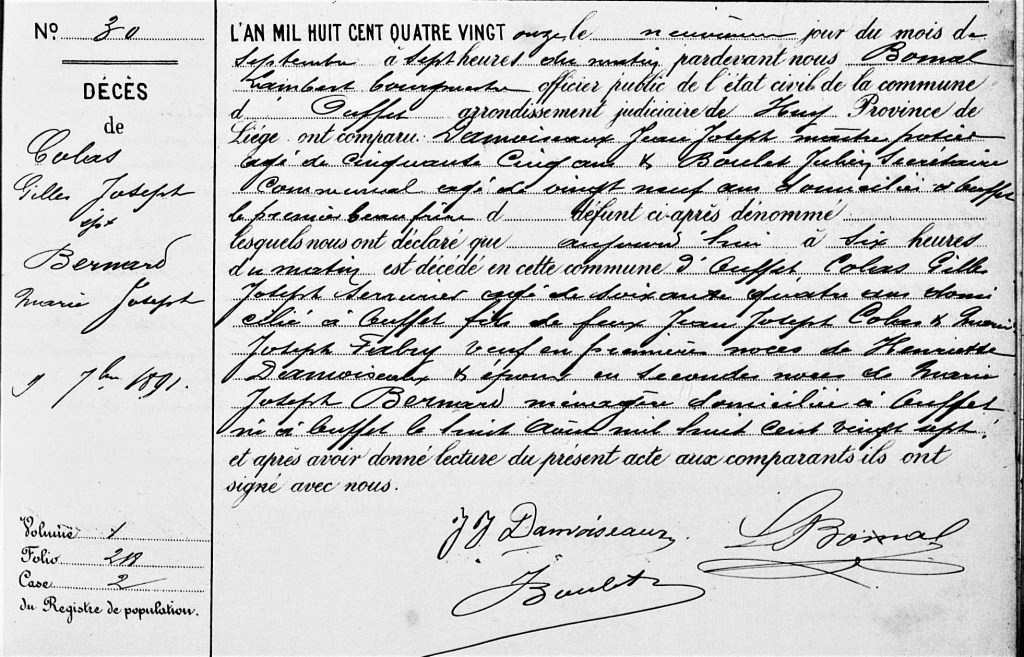 No 30
DÉCÈS
de
Colas
Gilles Joseph
ept
Bernard
Marie Joseph
9 7bre 1891.
Volume 1
Folio 211
Case 2
du Registre de population.
L'AN MIL HUIT CENT QUATRE VINGT onze le neuvième jour du mois de
Septembre à sept heures du matin pardevant nous Bomal
Lambert bourgmestre officier public de l'état civil de la commune
d' Ouffet arrondissement judiciaire de Huy Province de
Liége ont comparu Damoiseaux Jean Joseph maître potier
agé de cinquante cinq ans & Boulet Julien Secrétaire
Communal agé de vingt neuf ans domiciliés à Ouffet
le premier beau frère d défunt ci-après dénommé
lesquels nous ont déclaré que aujourd'hui à six heures
du matin est décédé en cette commune d'Ouffet Colas Gilles
Joseph serrurier agé de soixante quatre ans domi
cilié à Ouffet fils de feux Jean Joseph Colas & Marie
Joseph Fabry veuf en premières noces de Henriette
Damoiseaux & époux en secondes noces de Marie
Joseph Bernard ménagère domiciliée à Ouffet
né à Ouffet le huit Août mil huit cent vingt sept.
et après avoir donné lecture du présent acte aux comparants ils ont
signé avec nous.
JJ Damoiseaux
L Bomal
J Boulet